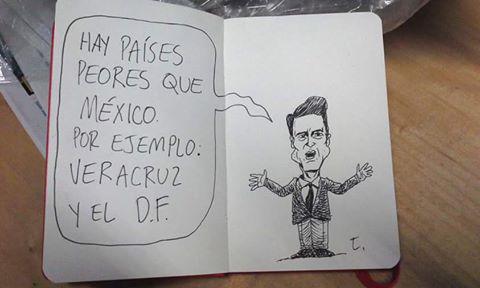 HAY PAÍSES
PEORES QUE
MÉXICO.
POR EJEMPLO:
VERACRUZ
Y EL D.F.
t.